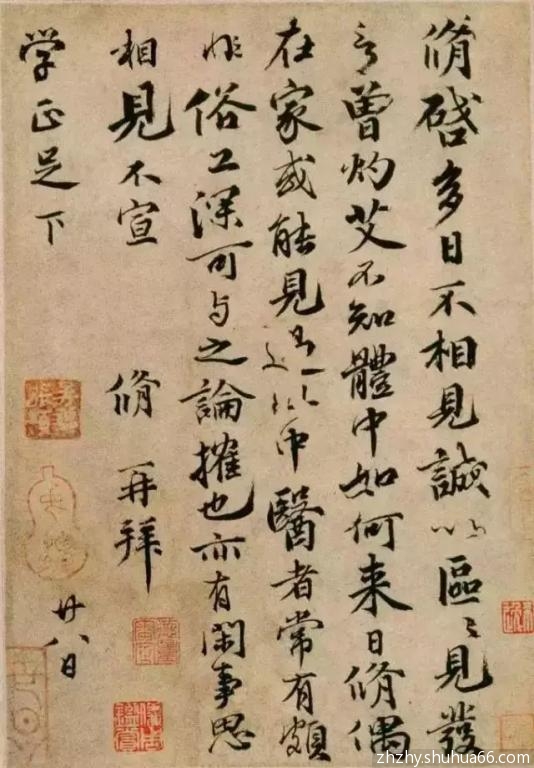 脩啓多日不相見誠以區〻見發
言曾灼艾不知體中如何来日脩偶
在家或能見過此中醫者常有頗
非俗工深可与之論搉也亦有閑事思
相見不宣 脩再拜
学正足下 廿八日
zhzhy.shuhua66.com